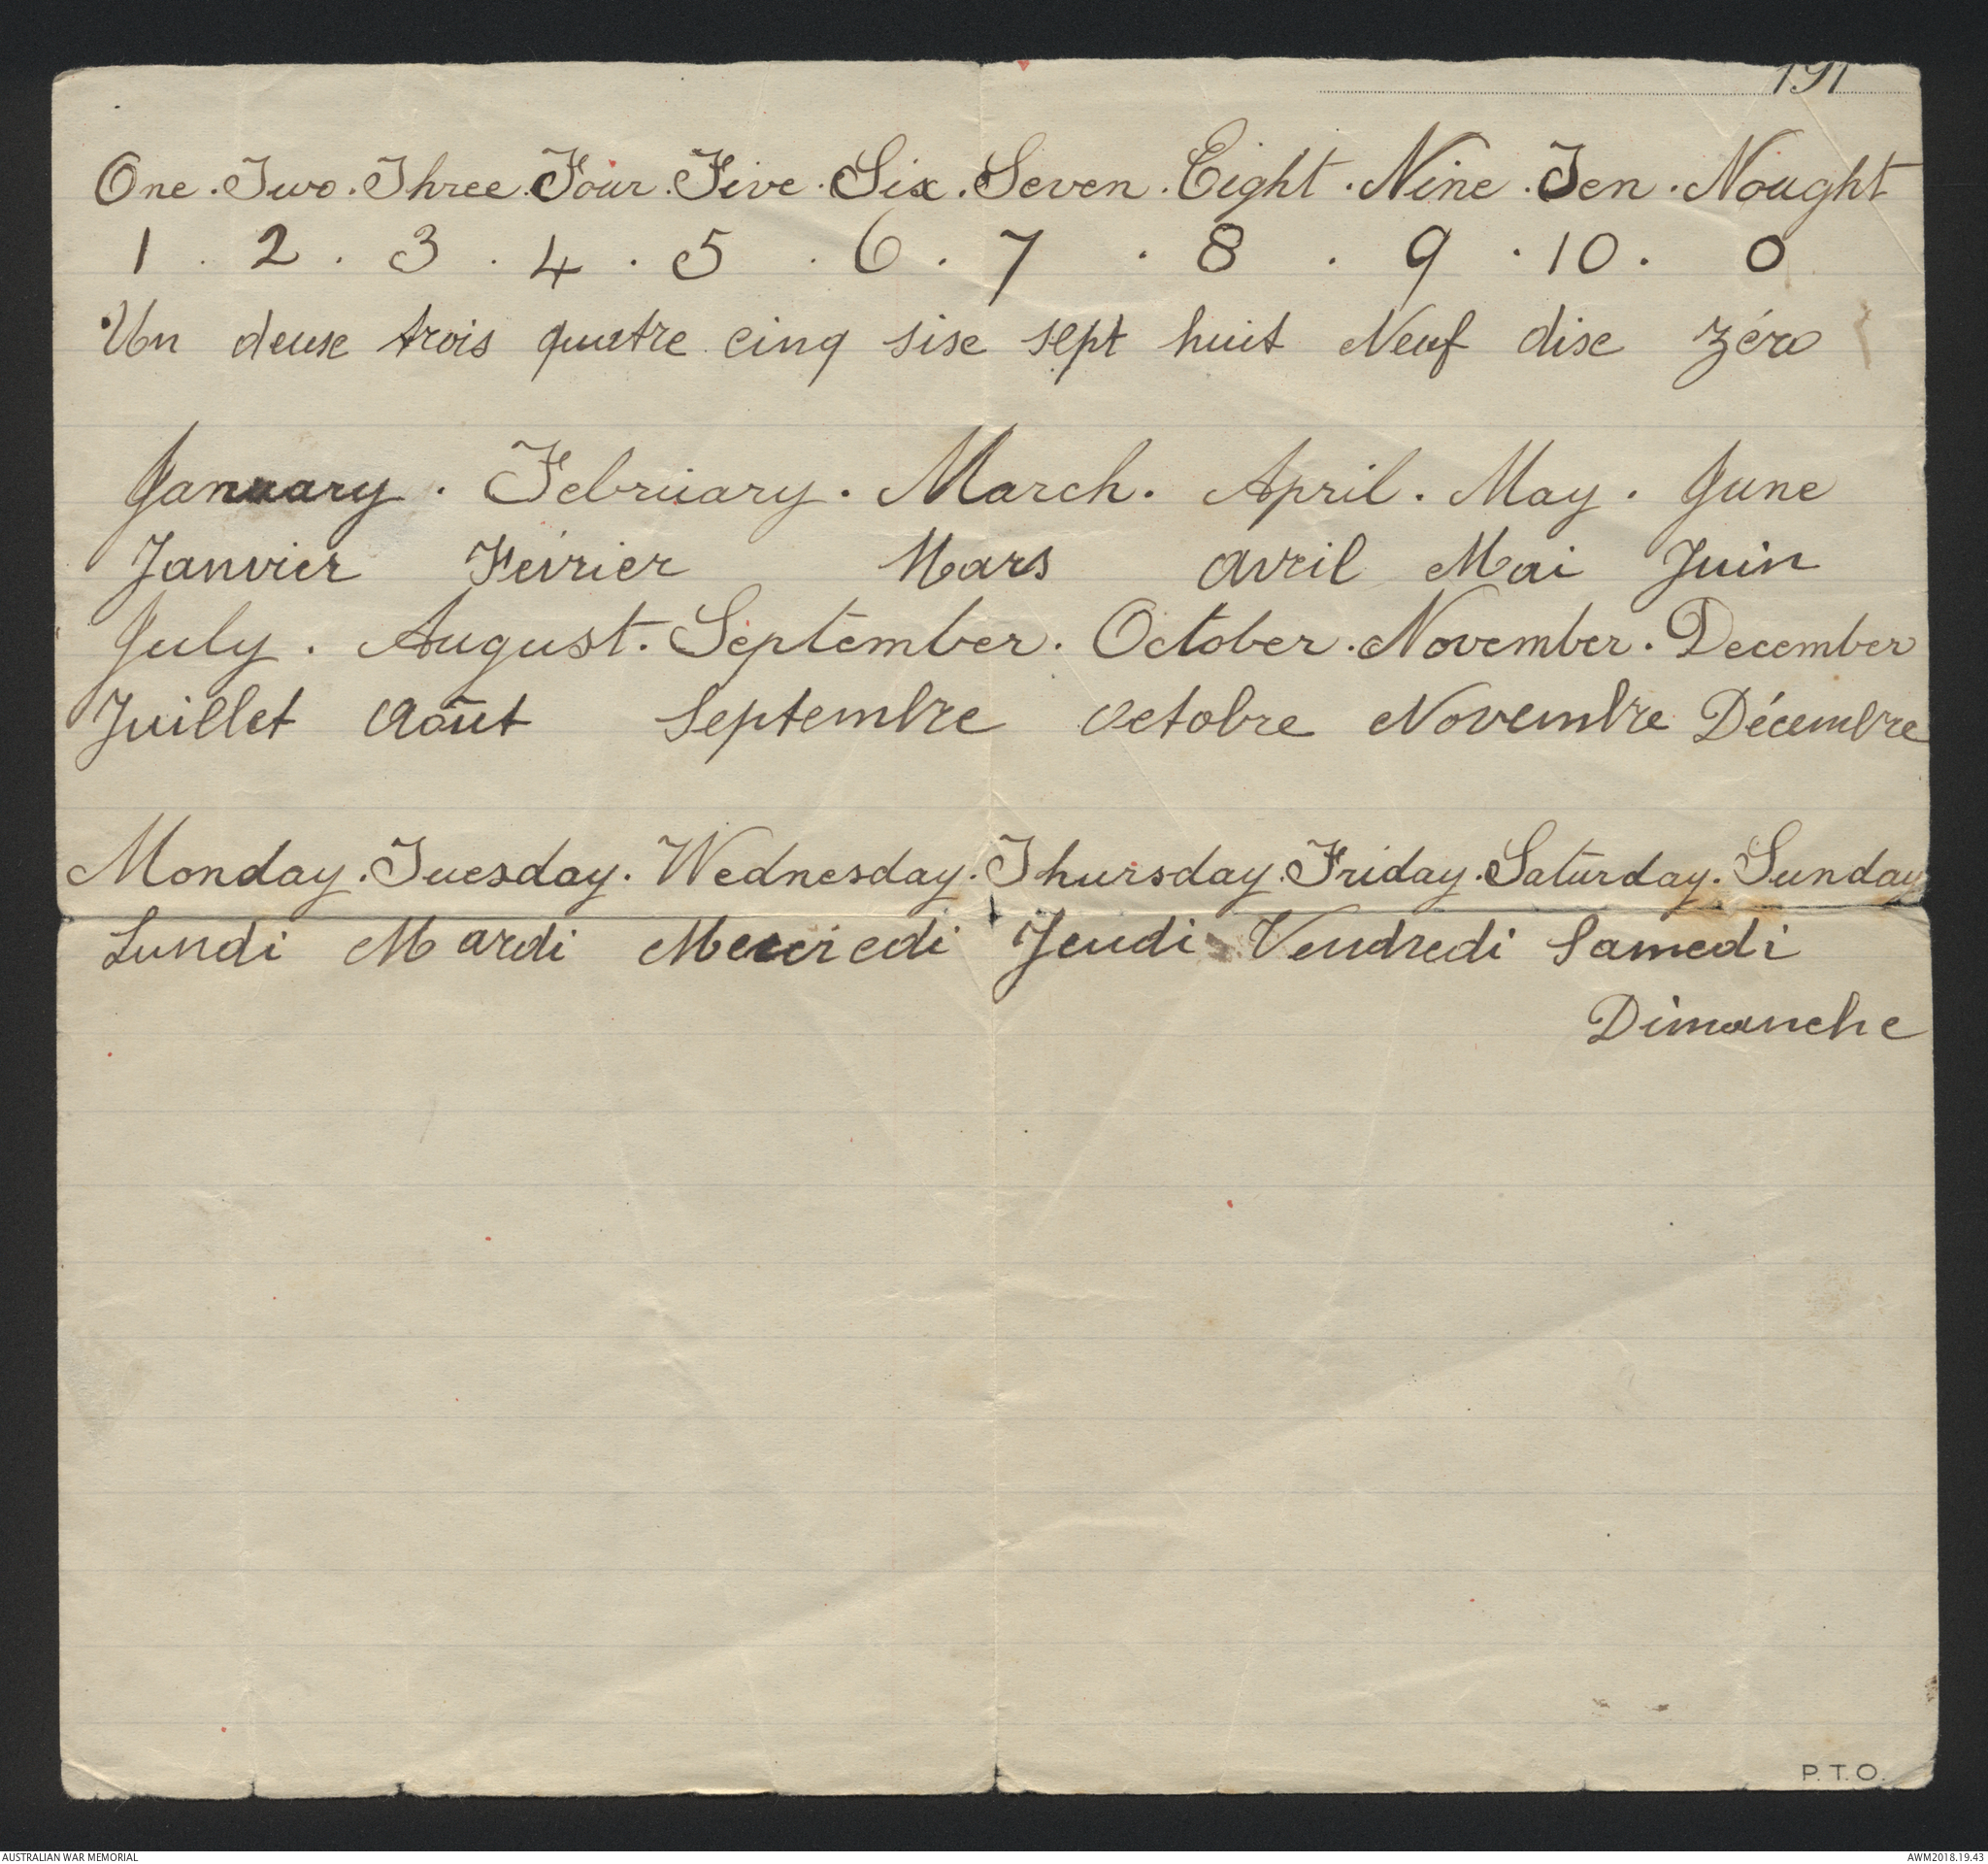 191
One . Two . Three . Four . Five . Six . Seven . Eight . Nine . Ten . Nought
1 . 2 . 3 . 4 . 5 . 6 . 7 . 8 . 9 . 10 . 0
Un deux trois quatre cinq six sept huit Neuf dix zéro
January . February . March . April . May . June
Janvier Février Mars avril Mai Juin
July . August . September . October . November . December
Juillet Août Septembre octobre Novembre Décembre
Monday . Tuesday . Wednesday . Thursday . Friday . Saturday . Sunday
Lundi Mardi Mercredi Jeudi Vendredi Samedi
Dimanche
P.T.O.
AUSTRALIAN WAR MEMORIAL AWM2018.19.43